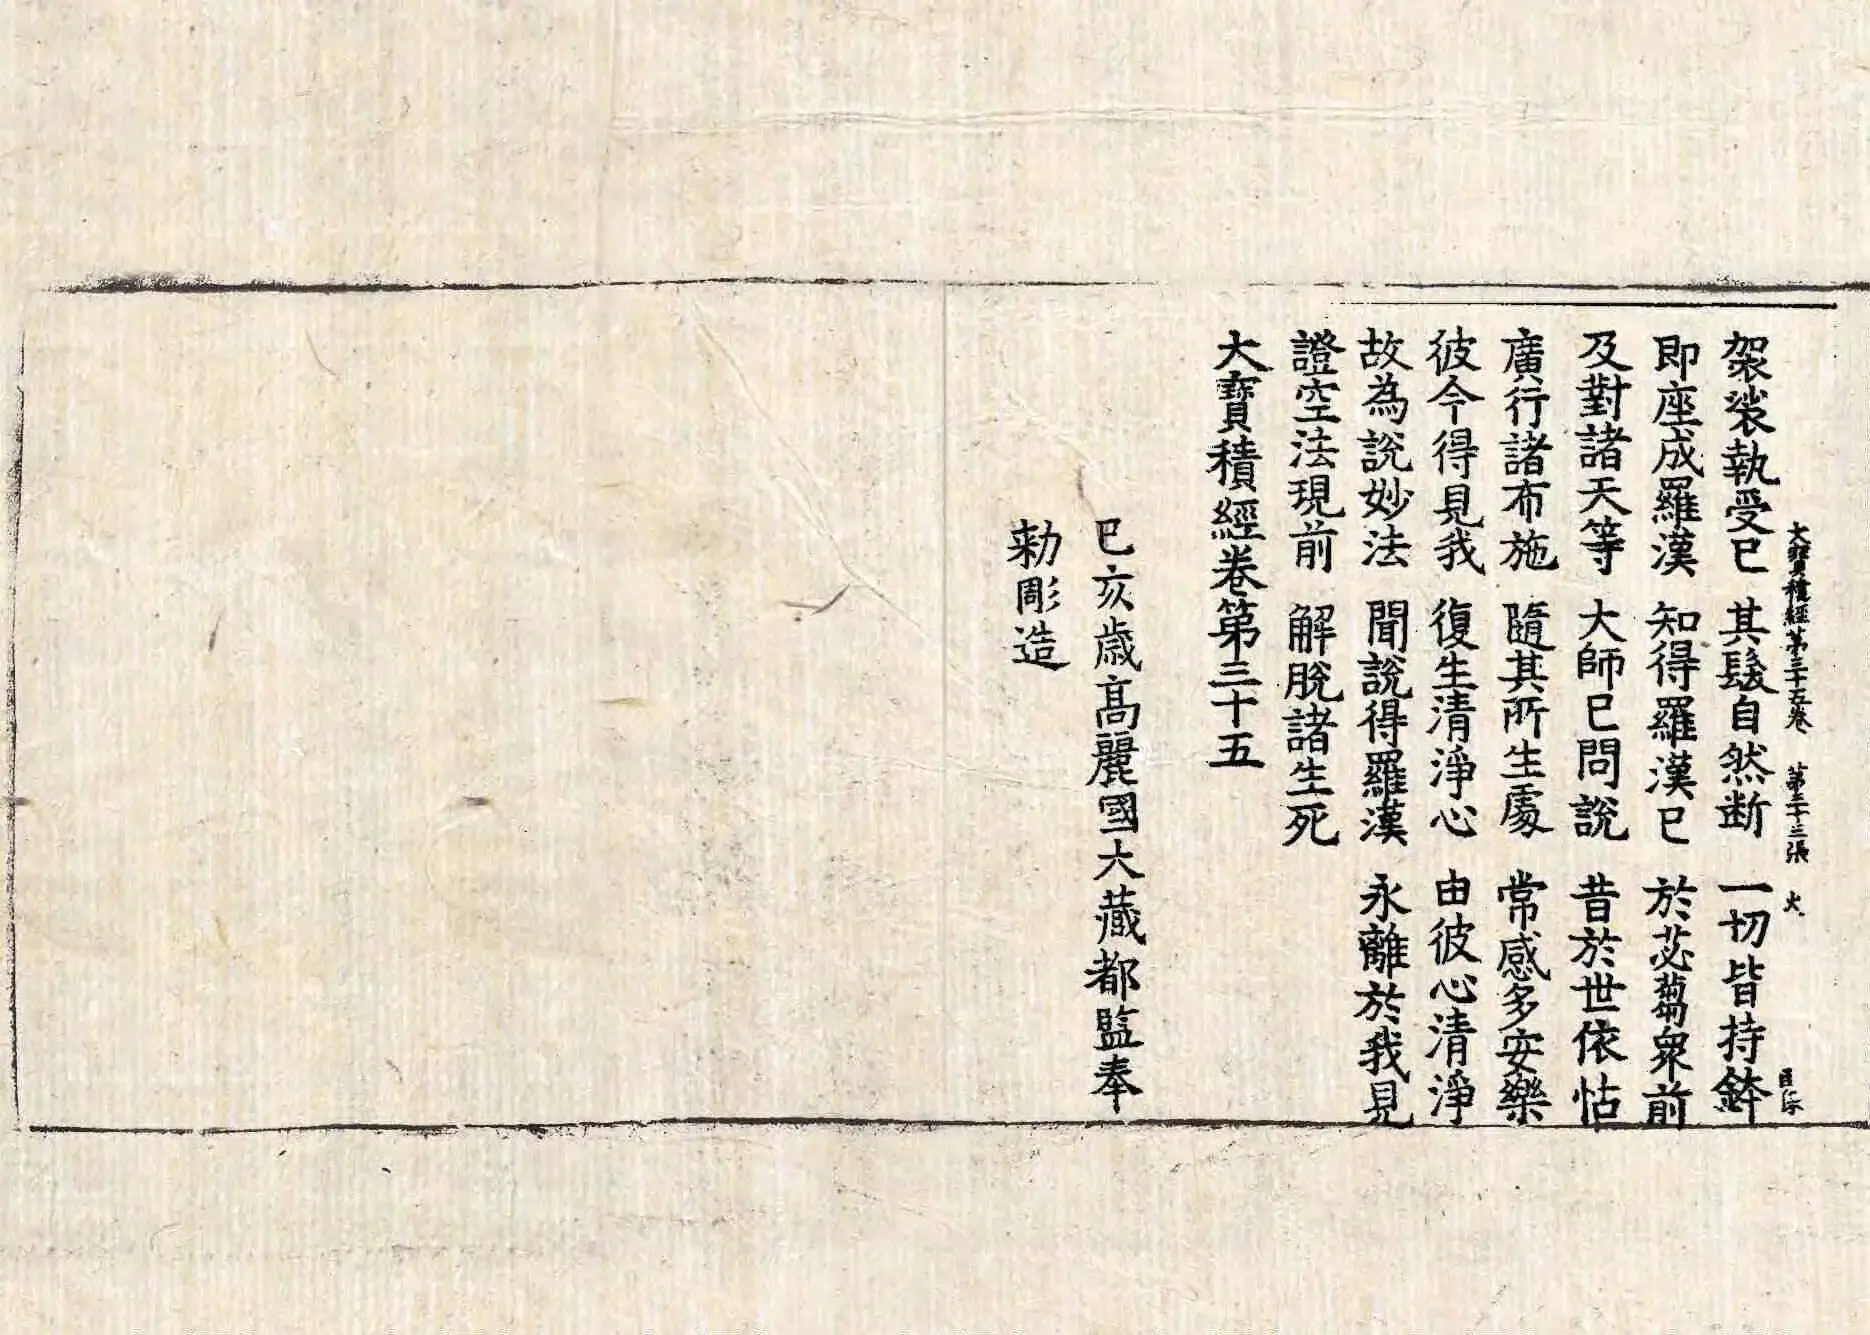 大寶積經第三十五卷 第三十三張 火
袈裟執受已 其髮自然断 一切皆持鉢
即座成羅漢 知得羅漢已 於苾蒭衆前
及對諸天等 大師已問說 昔於世依怙
廣行諸布施 隨其所生處 常感多安樂
彼今得見我 復生清淨心 由彼心清淨
故為說妙法 聞說得羅漢 永離於我見
證空法現前 解脫諸生死
大寶積經卷第三十五
己亥歲高麗國大藏都監奉
勑彫造